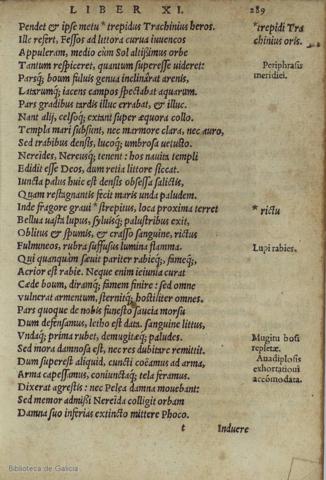 LIBER XI. 289
Pendet & ipse metu * trepidus Trachinius heros. *trepidi Tra
Ille refert, Fessos ad littora curua iuuencos chinius oris.
Appuleram, medio cùm Sol altissimus orbe
Tantum respiceret, quantum superesse uideret: Periphrasis
Parsq; boum fuluis genua inclinârat arenis, meridiei.
Latarumq; iacens campos spectabat aquarum.
Pars gradibus tardis illuc errabat, & illuc.
Nant alij, celsoq; extant super æquora collo.
Templa mari subsunt, nec marmore clara, nec auro,
Sed trabibus densis, lucoq; umbrosa uetusto.
Nereides, Nereusq; tenent: hos nauita templi
Edidit esse Deos, dum retia littore siccat.
Iuncta palus huic est densis obsessa salictis,
Quam restagnantis fecit maris unda paludem.
Inde fragore graui * strepitus, loca proxima terret * rictu
Bellua uasta lupus, syluisq; palustribus exit,
Oblitus & spumis, & crasso sanguine, rictus
Fulmneos, rubra suffusus lumina flamma. Lupi rabies.
Qui quanquam sæuit pariter rabieq;, fameq;,
Acrior est rabie. Neque enim ieiunia curat
Cæde boum, diramq; famem finire: sed omne
vulnerat armentum, sternitq; hostiliter omnes.
Pars quoque de nobis funesto saucia morsu
Dum defensamus, letho est data. sanguine littus,
Vndaq; prima rubet, demugitæq; paludes. Mugitu boũ
Sed mora damnosa est, nec res dubitare remittit. repletæ.
Dum superest aliquid, cuncti coëamus ad arma, Anadiplosis
Arma capessamus, coniunctaq; tela feramus. exhortationi
Dixerat agrestis: nec Pelea damna mouebant: accõmodata.
Sed memor admissi Nereida colligit orbam
Damna suo inferias extincto mittere Phoco.
t Induere
Biblioteca de Galicia